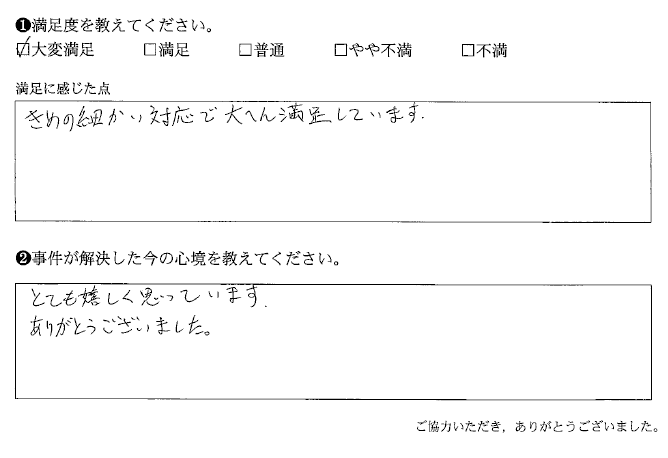 ❶満足度を教えてください。
☑大変満足 □満足 □普通 □やや不満 □不満
満足に感じた点
きめの細かい対応で大へん満足しています.
❷事件が解決した今の心境を教えてください。
とても嬉しく思っています.
ありがとうございました。
ご協力いただき，ありがとうございました。